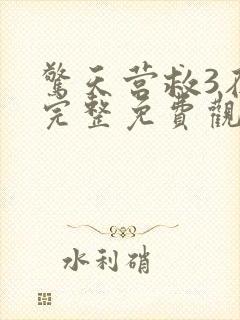 驚天营救3在
完整免費觀
水利硝